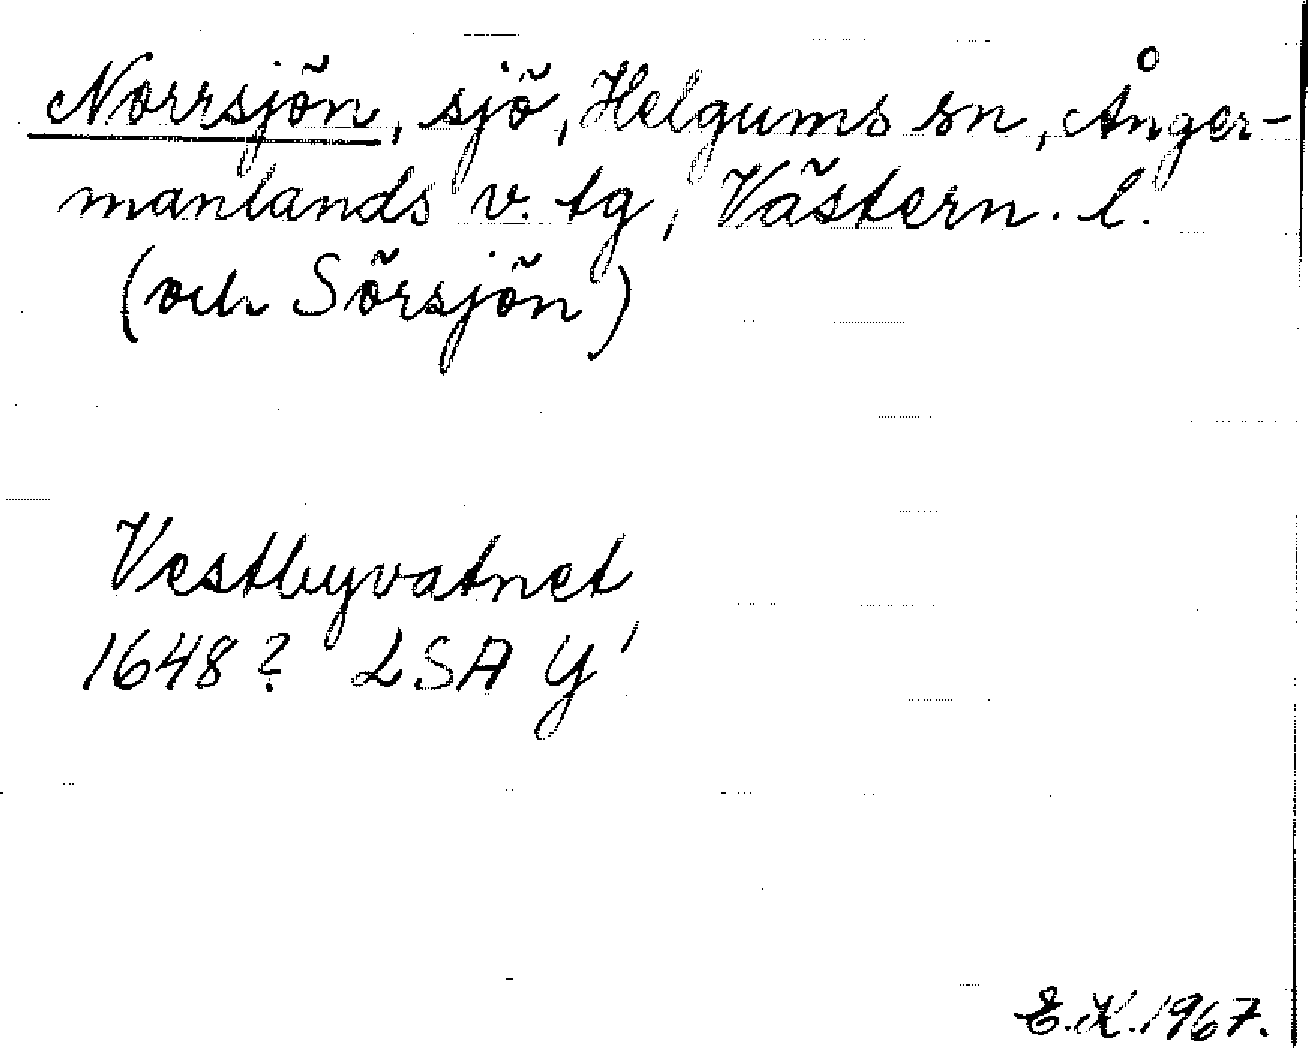 Norrsjön, sjö, Helgums sn, Ånger-
manlands v. tg, Västern. l.
(och Sörsjön)
Vestbyvatnet
1648? LSA Y'
E.K. 1967.